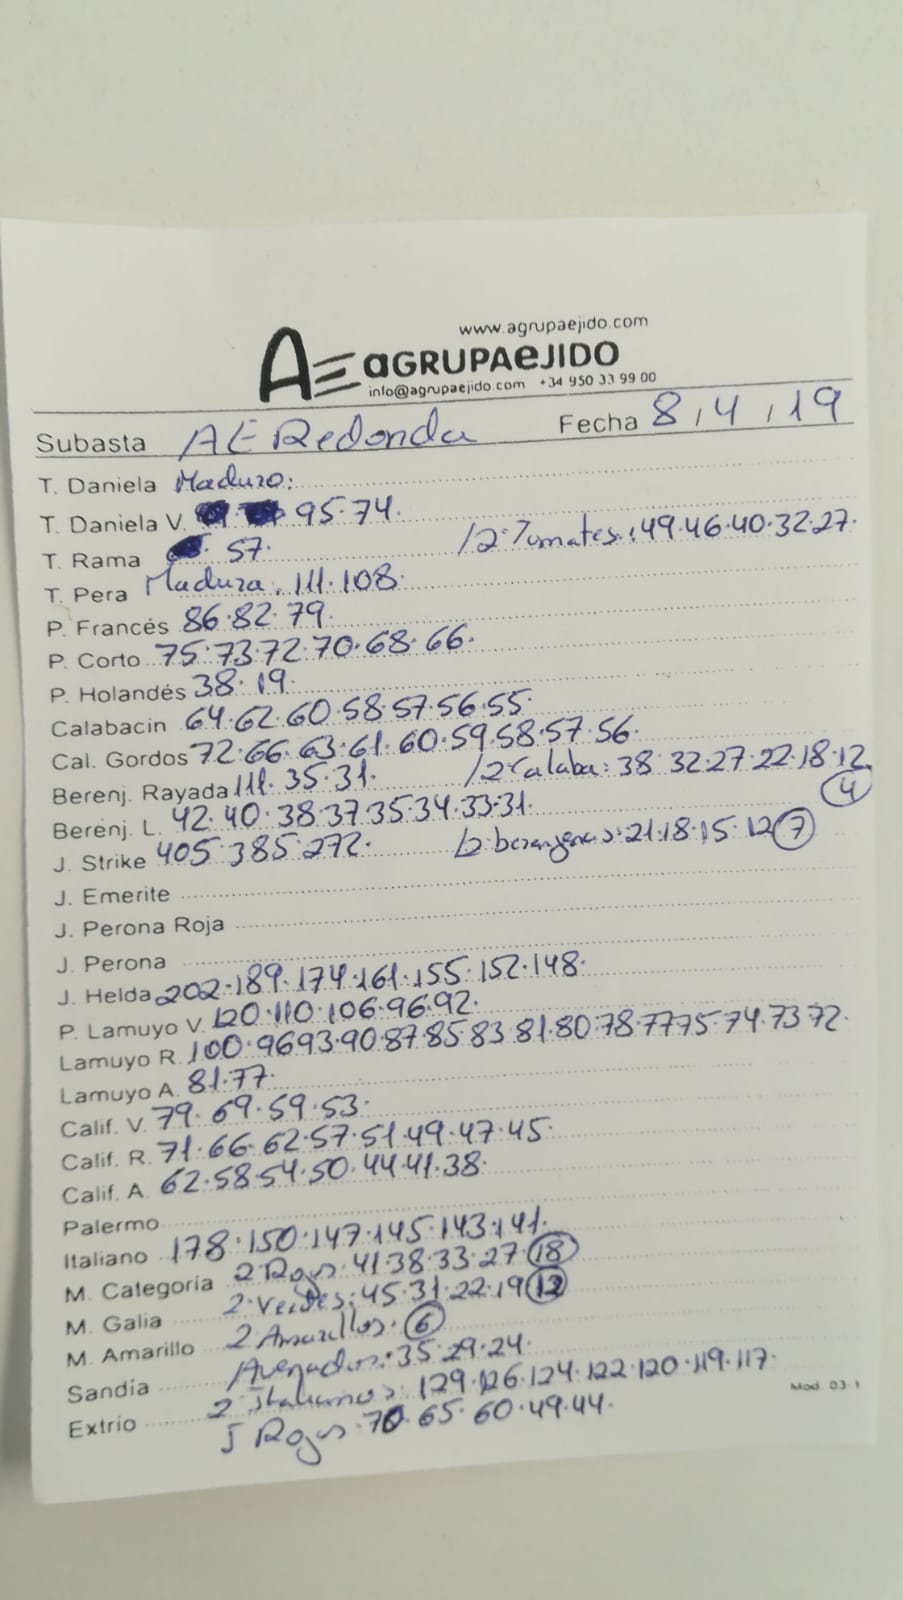 www.agrupaejido.com
AE aGRUPAeJIDO
info@agrupaejido.com +34 950 33 99 00
Subasta AE Redonda Fecha 8/4/19
T. Daniela Maduro:
T. Daniela V. 95·74·
T. Rama 57· /2ª Tomates: 49·46·40·32·27·
T. Pera Madura: 111·108·
P. Francés 86·82·79·
P. Corto 75·73·72·70·68·66·
P. Holandés 38·19·
Calabacin 64·62·60·58·57·56·55·
Cal. Gordos 72·66·63·61·60·59·58·57·56·
Berenj. Rayada 111·35·31· /2ª Calaba: 38·32·27·22·18·12 (4)
Berenj. L. 42·40·38·37·35·34·33·31·
J. Strike 405·385·272· /2 berenjenas: 21·18·15·12 (7)
J. Emerite
J. Perona Roja
J. Perona
J. Helda 202·189·174·161·155·152·148·
P. Lamuyo V. 120·110·106·96·92·
Lamuyo R. 100·96·93·90·87·85·83·81·80·78·77·75·74·73·72·
Lamuyo A. 81·77·
Calif. V. 79·69·59·53·
Calif. R. 71·66·62·57·51·49·47·45·
Calif. A. 62·58·54·50·44·41·38·
Palermo
Italiano 178·150·147·145·143·141·
M. Categoría 2 Rojos: 41·38·33·27 (18)
M. Galia 2 Verdes: 45·31·22·19 (12)
M. Amarillo 2 Amarillos: (6)
Sandía Asurados: 35·29·24·
Extrio 2 Italianos: 129·126·124·122·120·119·117·
Mod. 03-1
J Rojos 70·65·60·49·44·